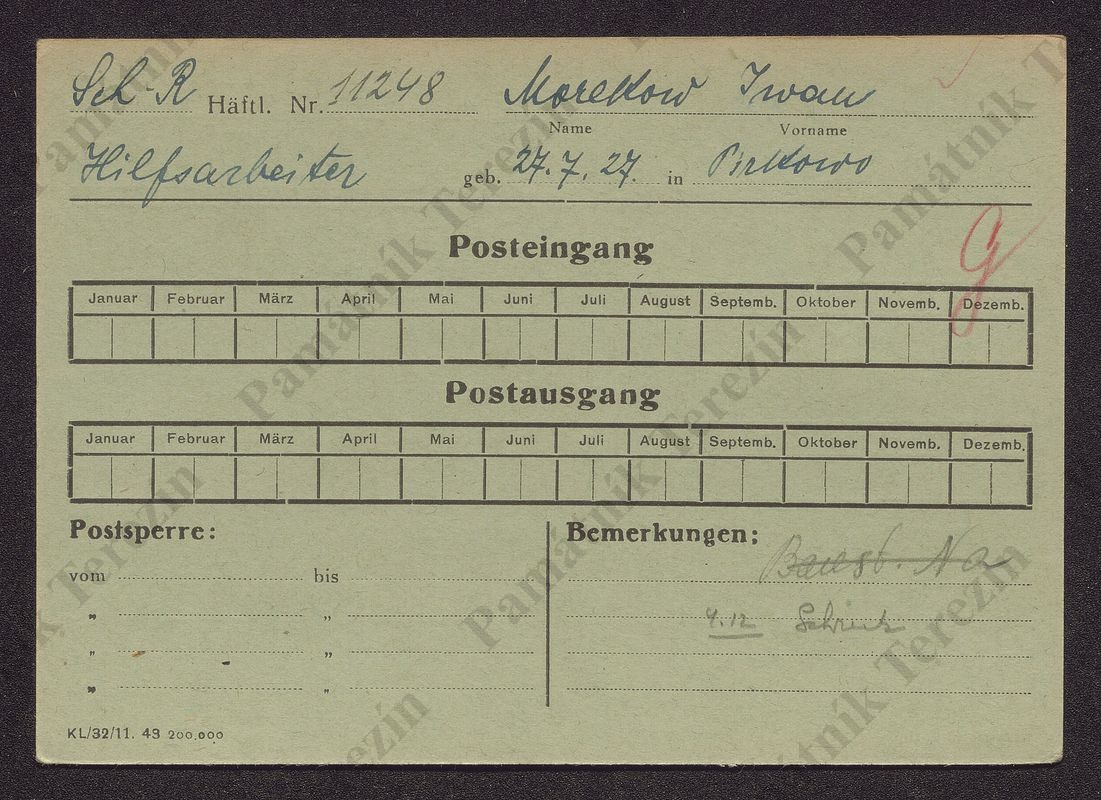 Sch-R Häftl. Nr. 11248 Morekow Iwan
Name Vorname
Hilfsarbeiter geb. 27.7.27. in Pirkowo
Posteingang
Januar Februar März April Mai Juni Juli August Septemb. Oktober Novemb. Dezemb.
Postausgang
Januar Februar März April Mai Juni Juli August Septemb. Oktober Novemb. Dezemb.
Postsperre: Bemerkungen:
vom bis
„ „ 4.12
„ „
„ „
KL/32/11. 43 200.000
Památník Terezín